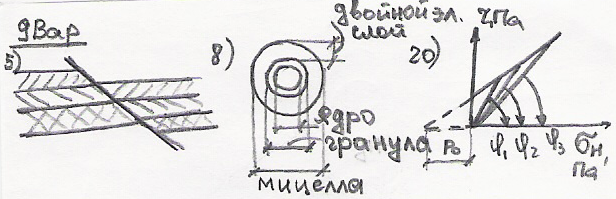 9 Вар
5)
8)
двойной эл.
слой
ядро
гранула
мицелла
20)
τ, Па
P₀
φ₁ φ₂ φ₃ σн,
Па